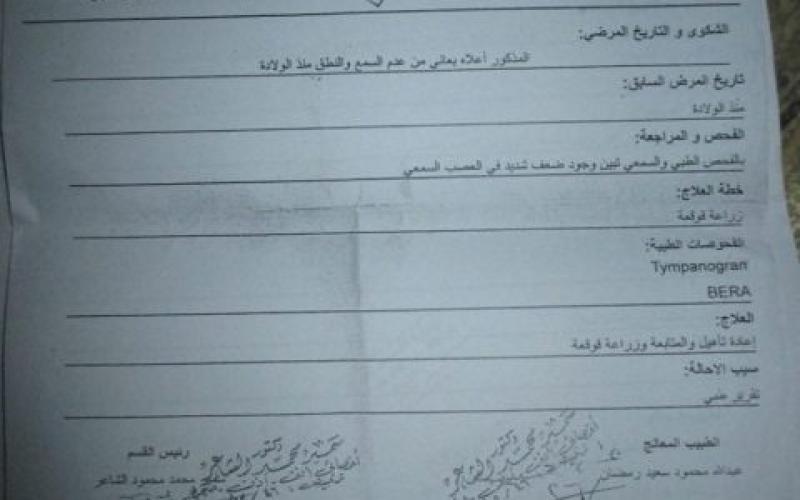 الشكوى و التاريخ المرضي:
المذكور أعلاه يعاني من عدم السمع والنطق منذ الولادة
تاريخ المرض السابق:
منذ الولادة
الفحص و المراجعة:
بالفحص الطبي والسمعي تبين وجود ضعف شديد في العصب السمعي
خطة العلاج:
زراعة قوقعة
الفحوصات الطبية:
Tympanogran
BERA
العلاج:
إعادة تأهيل والمتابعة وزراعة قوقعة
سبب الاحالة:
تقرير طبي
الطبيب المعالج
رئيس القسم
عبدالله محمود سعيد رمضان
محمد محمود الشاعر
دكتور
دكتور